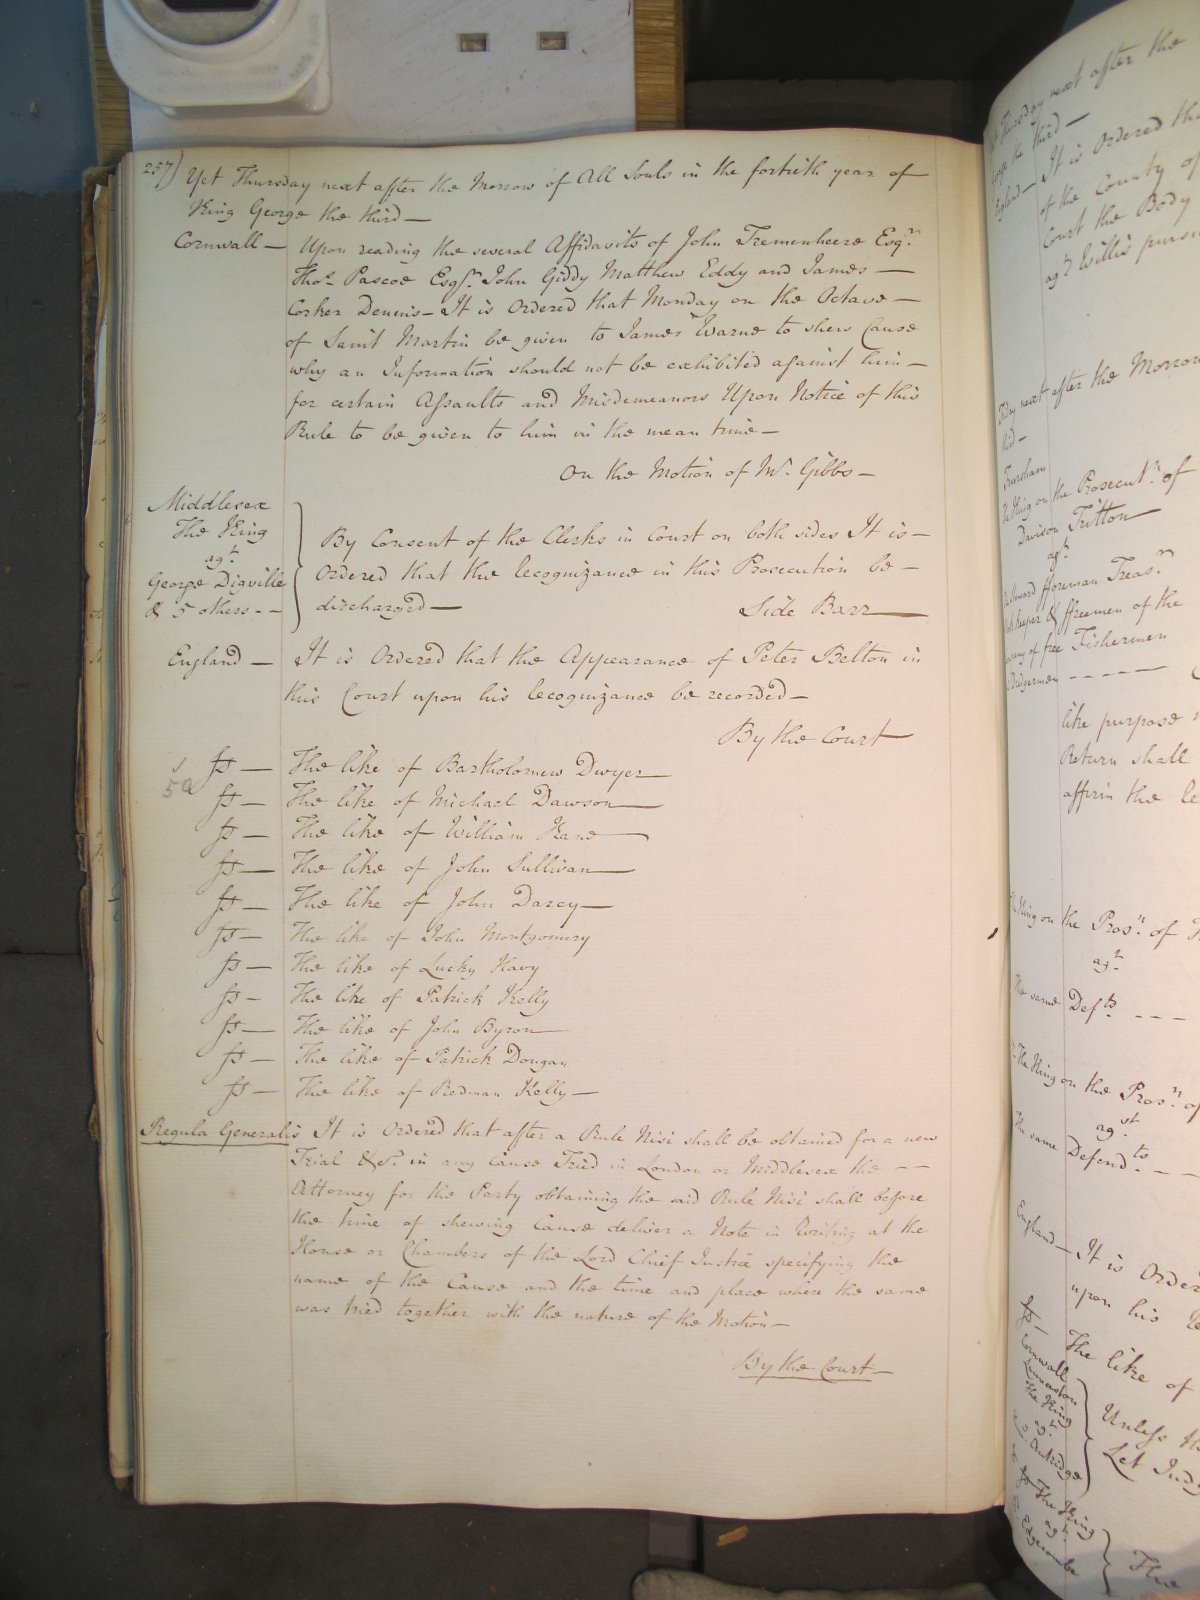 257) Yet Thursday next after the Morrow of All Souls in the fortieth year of
King George the third—
Cornwall — Upon reading the several Affidavits of John Tremenheere Esqr.
Thos. Pascoe Esqr. John Giddy Matthew Eddy and James —
Corker Dennis — It is Ordered that Monday on the Octave —
of Saint Martin be given to James Warne to shew Cause
why an Information should not be exhibited against him —
for certain Assaults and Misdemeanors Upon Notice of this
Rule to be given to him in the mean time —
On the Motion of Mr. Gibbs —
Middlesex
The King
agt.
George Digville
& 5 others - -
By Consent of the Clerks in Court on both sides It is —
Ordered that the Recognizance in this Prosecution be —
discharged —
Side Barr —
England — It is Ordered that the Appearance of Peter Belton in
this Court upon his Recognizance be recorded —
By the Court
50 fs — The like of Bartholomew Dwyer —
fs — The like of Michael Dawson —
fs — The like of William Kane —
fs — The like of John Sullivan —
fs — The like of John Darcy —
fs — The like of John Montgomery
fs — The like of Lucky Havy
fs — The like of Patrick Kelly
fs — The like of John Byron —
fs — The like of Patrick Dongan
fs — The like of Redman Kelly —
Regula Generalis It is Ordered that after a Rule Nisi shall be obtained for a new
Trial &c. in any Cause Tried in London or Middlesex the - -
Attorney for the Party obtaining the said Rule Nisi shall before
the time of shewing Cause deliver a Note in Writing at the
House or Chambers of the Lord Chief Justice specifying the
name of the Cause and the time and place where the same
was tried together with the nature of the Motion —
By the Court —
Thursday next after the
George the third —
England — It is Ordered tha
of the County of
Court the Body
agt. Willis pursu
next after the Morrow
third —
The King on the Prosecutn. of
Davison Tritton
agt.
fforeman Treasr.
keeper & ffreemen of the
of free Fishermen
Dredgermen - - - - -
like purpose
Return shall
affirm the
The King on the Prosn. of
agt.
The same Defts. - - -
The King on the Prosn. of
agst.
The same Defendts. - -
England — It is Order
upon his
fs — The like of
Cornwall
Launceston
The King
agt.
Unless th
Let Jud
The King
agt.
Edgcombe
The